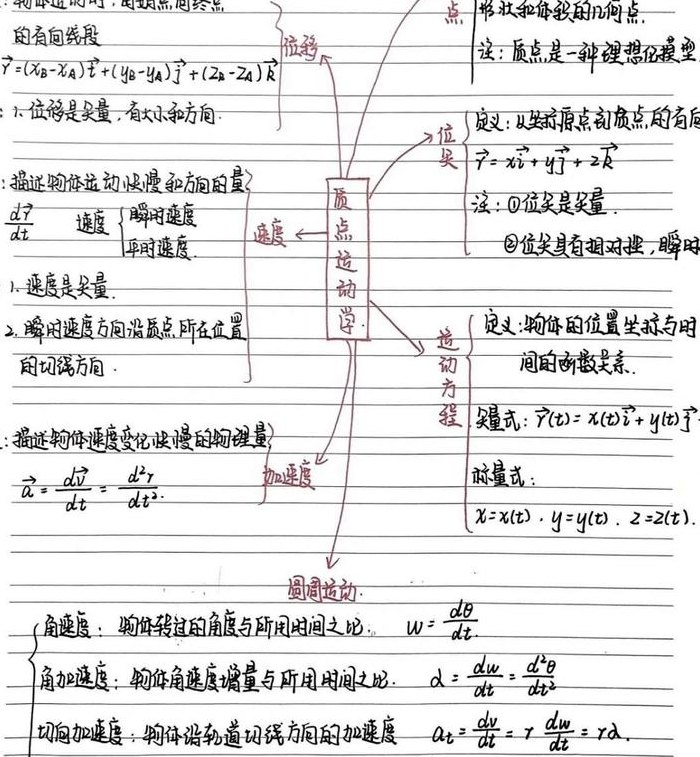 物体运动时,由始点向终点
的有向线段
r⃗=(x_B-x_A)i⃗+(y_B-y_A)j⃗+(z_B-z_A)k⃗
:1、位移是矢量,有大小和方向.
位移
点
形状和体积的几何点.
注:质点是一种理想化模型
位矢
定义:从坐标原点到质点的有向
r⃗=xi⃗+yj⃗+zk⃗
注:①位矢是矢量.
②位矢具有相对性,瞬时
质点运动学.
:描述物体运动快慢和方向的量
dr⃗/dt 速度 { 瞬时速度
平时速度.
1、速度是矢量.
2、瞬时速度方向沿质点所在位置
的切线方向.
速度
运动方程
定义:物体的位置坐标与时
间的函数关系.
矢量式:r⃗(t)=x(t)i⃗+y(t)j⃗
标量式:
x=x(t).y=y(t).z=z(t).
:描述物体速度变化快慢的物理量
a⃗=dv⃗/dt=d²r/dt².
加速度
圆周运动.
角速度:物体转过的角度与所用时间之比. w=dθ/dt.
角加速度:物体角速度增量与所用时间之比. α=dw/dt=d²θ/dt²
切向加速度:物体沿轨道切线方向的加速度 a_t=dv/dt=r dw/dt=rα.